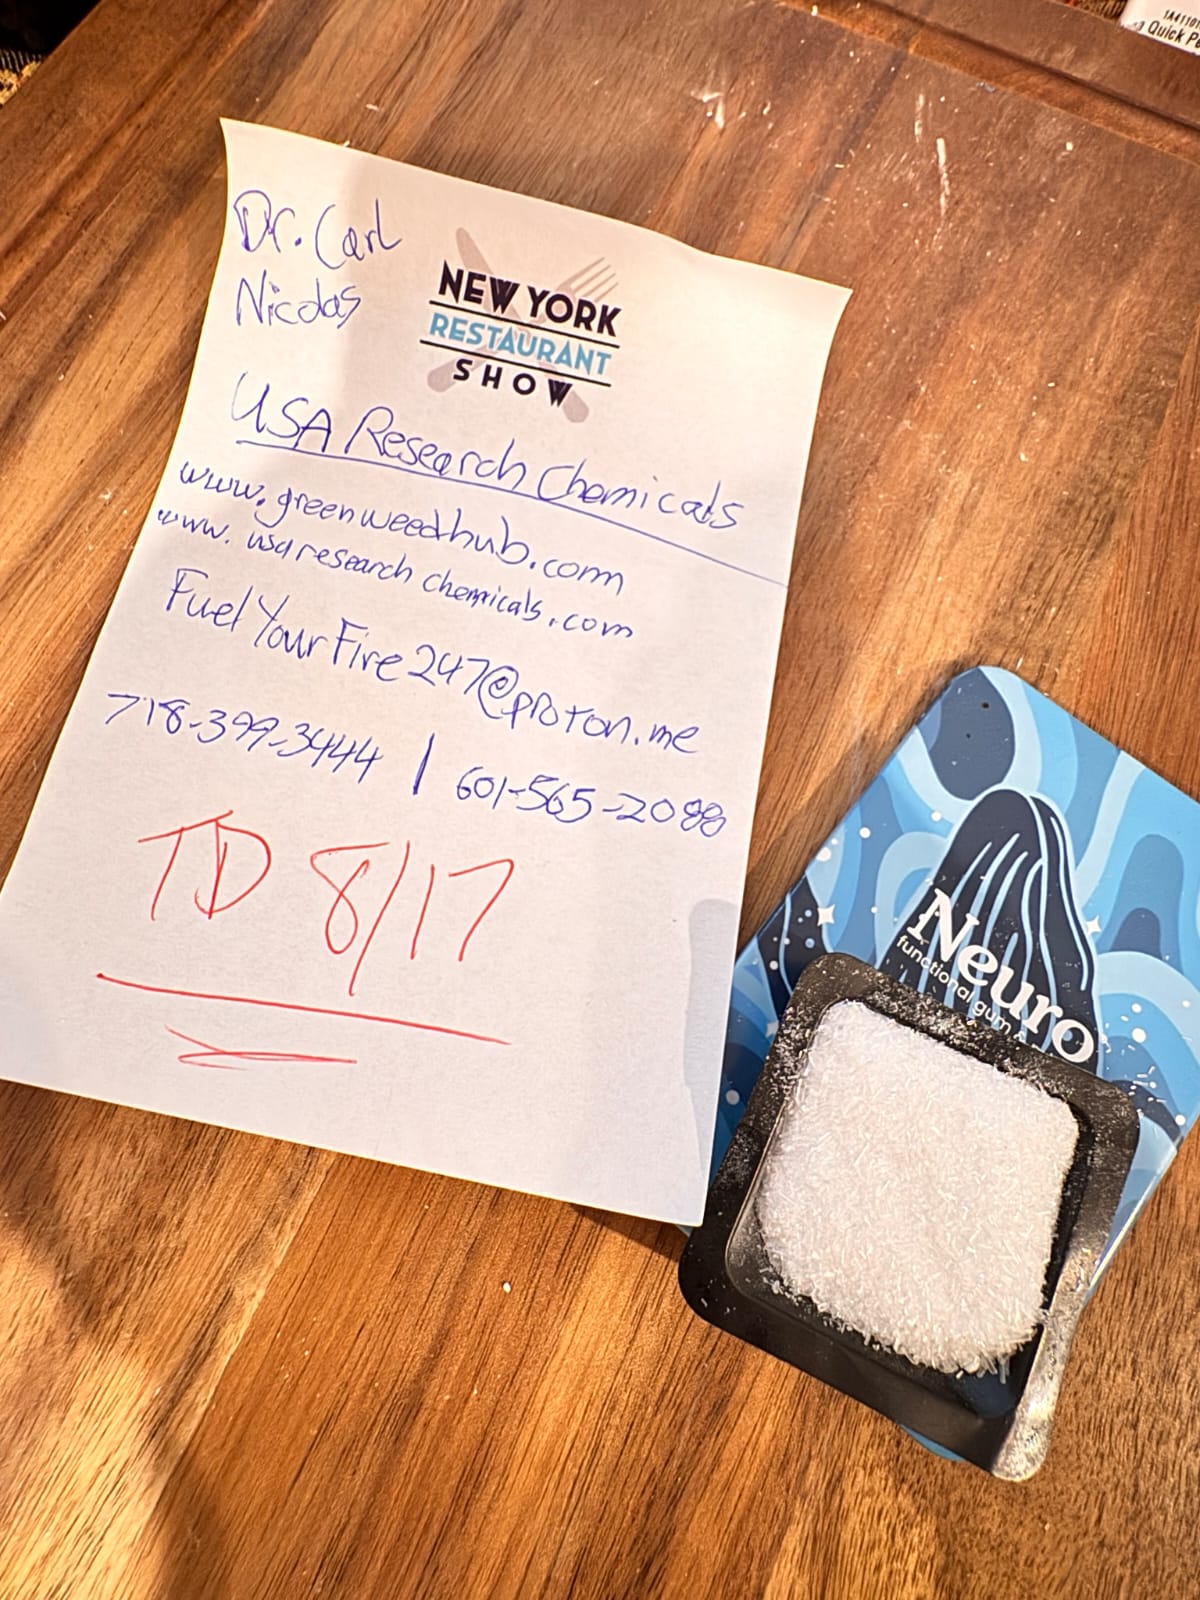 Dr. Carl
Nicolas
NEW YORK
RESTAURANT
SHOW
USA Research Chemicals
www.greenweedhub.com
www.usaresearchchemicals.com
FuelYourFire247@proton.me
718-399-3444 | 601-565-2088
TD 8/17
Neuro
functional gum &
Quick